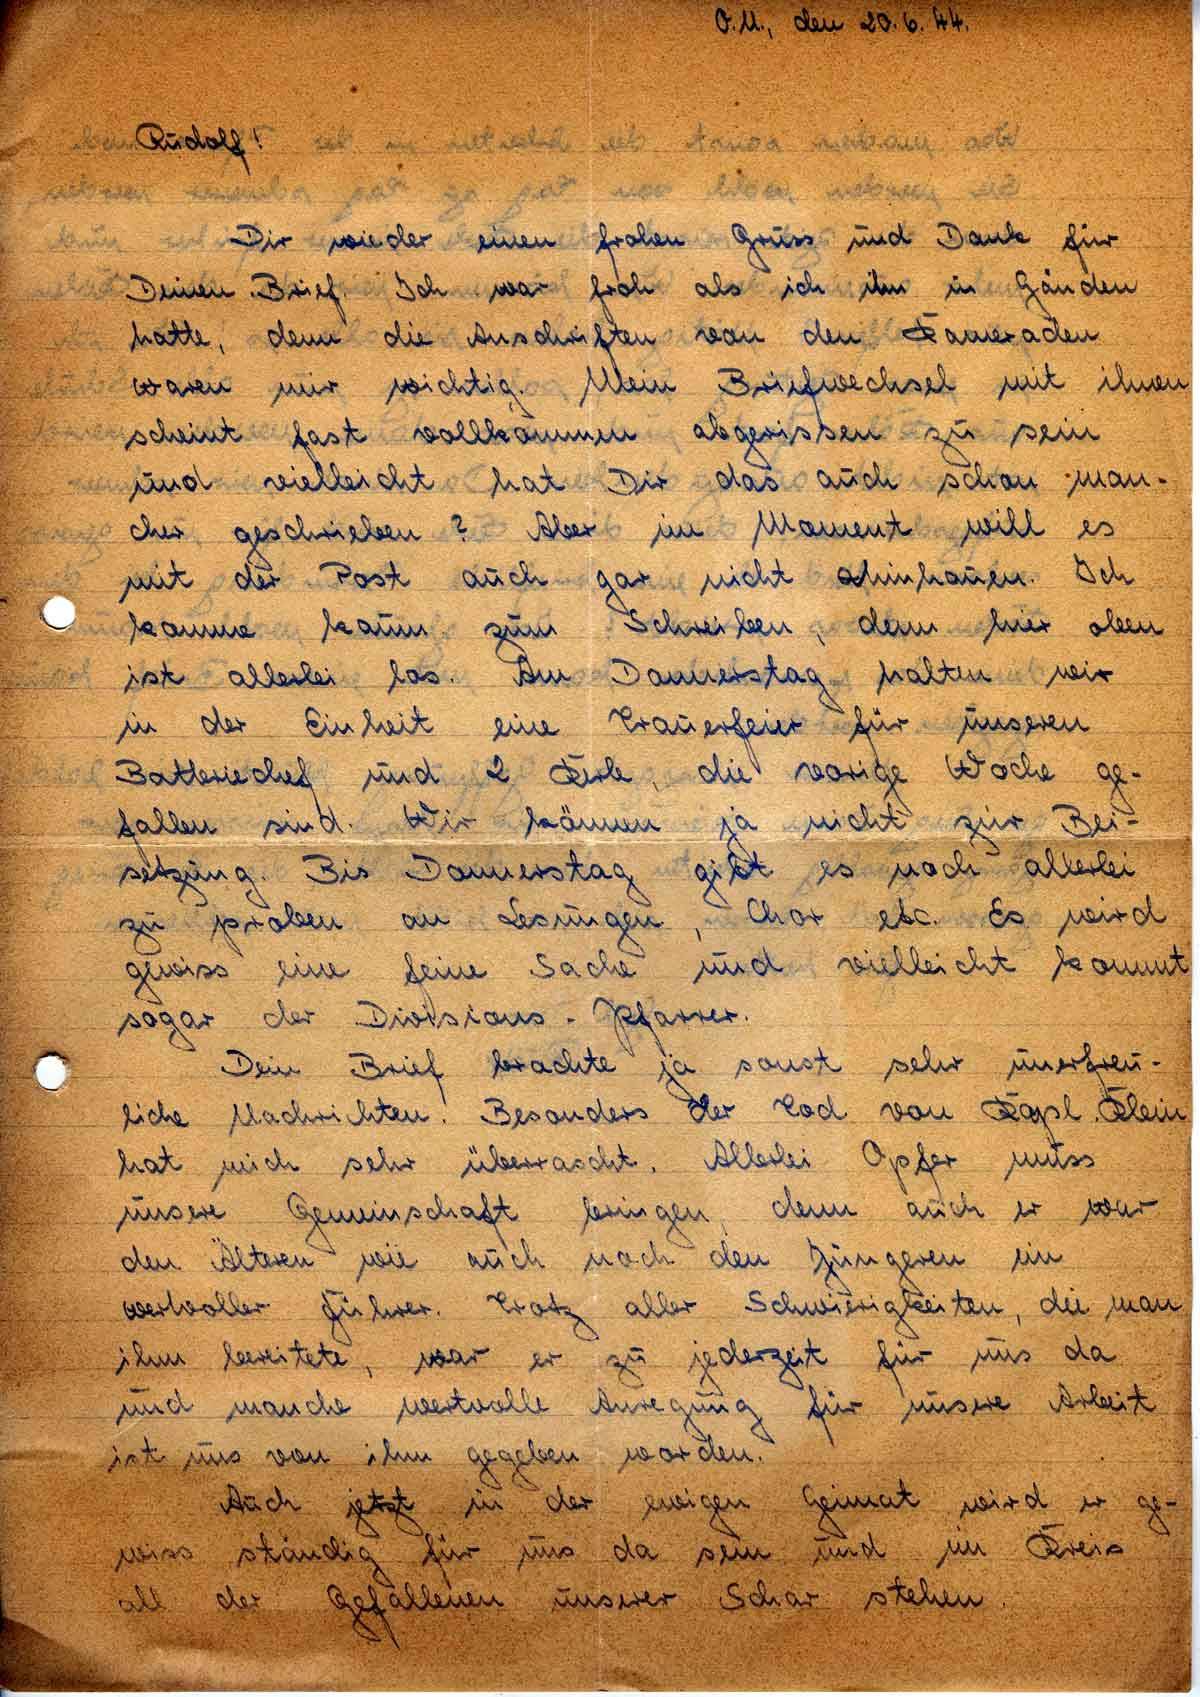 O.U., den 20.6.44.
Rudolf!
Dir wieder einen frohen Gruss und Dank für
Deinen Brief. Ich war froh als ich ihn in Händen
hatte, denn die Anschriften von den Kameraden
waren mir wichtig. Mein Briefwechsel mit ihnen
scheint fast vollkommen abgerissen zu sein
und vielleicht hat Dir das auch schon man-
cher geschrieben? Aber im Moment will es
mit der Post auch gar nicht hinhauen. Ich
komme kaum zum Schreiben, denn hier oben
ist allerlei los. Am Donnerstag halten wir
in der Einheit eine Trauerfeier für unseren
Batteriechef und 2 Kerle, die vorige Woche ge-
fallen sind. Wir können ja nicht zur Bei-
setzung. Bis Donnerstag gibt es noch allerlei
zu proben an Lesungen, Chor etc. Es wird
gewiss eine feine Sache und vielleicht kommt
sogar der Divisions-Pfarrer.
Dein Brief brachte ja sonst sehr unerfreu-
liche Nachrichten. Besonders der Tod von Kapl. Klein
hat mich sehr überrascht. Allerlei Opfer muss
unsere Gemeinschaft bringen, denn auch er war
den Älteren wie auch noch den Jüngeren ein
wertvoller Führer. Trotz aller Schwierigkeiten, die man
ihm bereitete, war er zu jederzeit für uns da
und manche wertvolle Anregung für unsere Arbeit
ist uns von ihm gegeben worden.
Auch jetzt in der ewigen Heimat wird er ge-
wiss ständig für uns da sein und im Kreis
all der Gefallenen unserer Schar stehen.